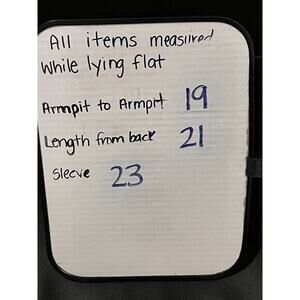 All items measured
While lying flat
Armpit to Armpit 19
Length from back 21
Sleeve 23